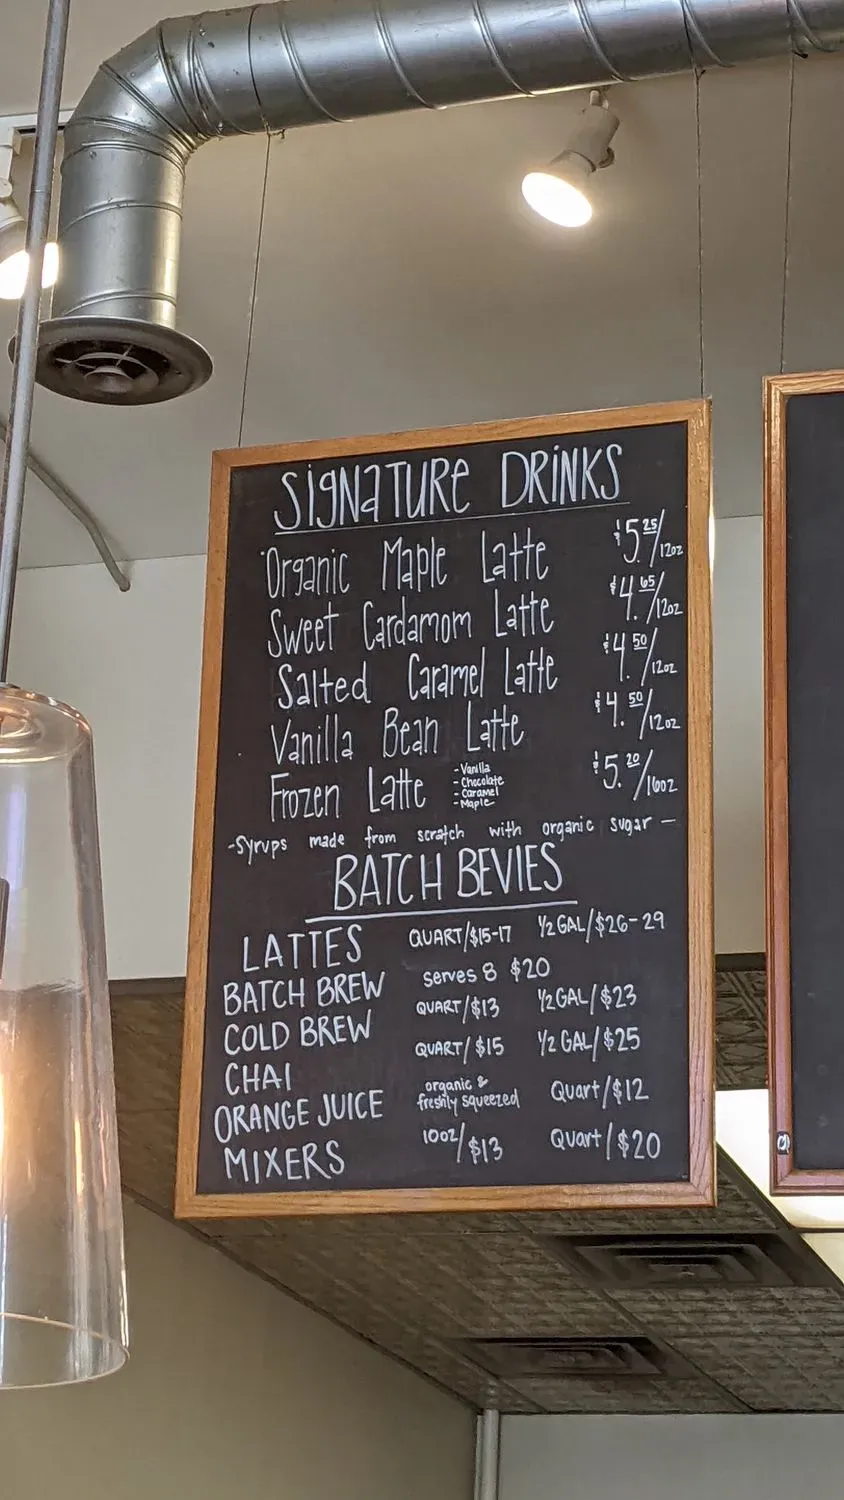 SIGNATURE DRINKS
Organic Maple Latte $5.25/12oz
Sweet Cardamom Latte $4.65/12oz
Salted Caramel Latte $4.50/12oz
Vanilla Bean Latte $4.50/12oz
Frozen Latte $5.20/16oz
- Vanilla
- Chocolate
- Caramel
- Maple
-Syrups made from scratch with organic sugar -
BATCH BEVIES
LATTES QUART/$15-17 1/2 GAL/$26-29
BATCH BREW serves 8 $20
COLD BREW QUART/$13 1/2 GAL/$23
CHAI QUART/$15 1/2 GAL/$25
ORANGE JUICE organic & freshly squeezed Quart/$12
MIXERS 10oz/$13 Quart/$20